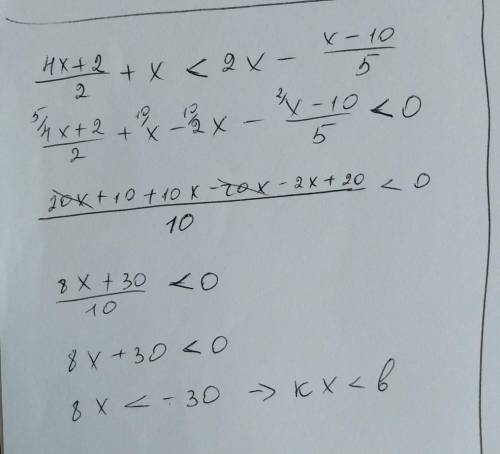 (4x+2)/2 + x < 2x - (x-10)/5
⁵⁄(4x+2)/2 + ¹⁰⁄x - ¹⁰⁄2x - ²⁄(x-10)/5 < 0
(20x+10+10x-20x-2x+20)/10 < 0
(8x+30)/10 < 0
8x+30 < 0
8x < -30 → kx < b